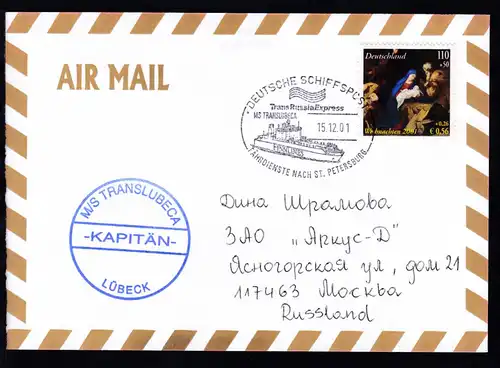 AIR MAIL
Deutschland 110
+50
+0,26
Weihnachten 2001 € 0,56
DEUTSCHE SCHIFFSPOST
TransRussiaExpress
M/S TRANSLUBECA
15.12.01
FINNLINES
NACH ST. PETERSBURG
M/S TRANSLUBECA
-KAPITÄN-
LÜBECK
Дина Шрамова
ЗАО „Аркус-Д"
Ясногорская ул, дом 21
117463 Москва
Russland